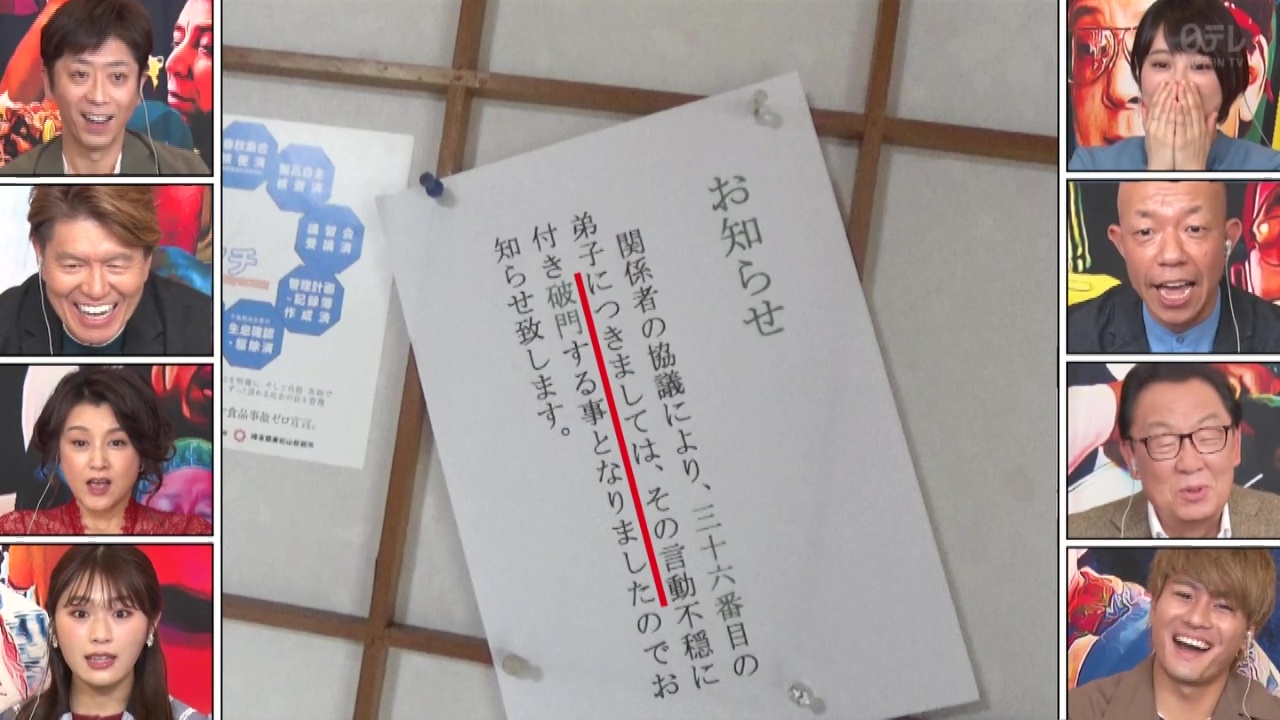 お知らせ
関係者の協議により、三十六番目の
弟子につきましては、その言動不穏に
付き破門する事となりましたのでお
知らせ致します。
春秋集合
検便済
製品自主
検査済
講習会
受講済
管理計画
・記録簿
作成済
生息確認
・駆除済
食品事故ゼロ宣言。
日テレ